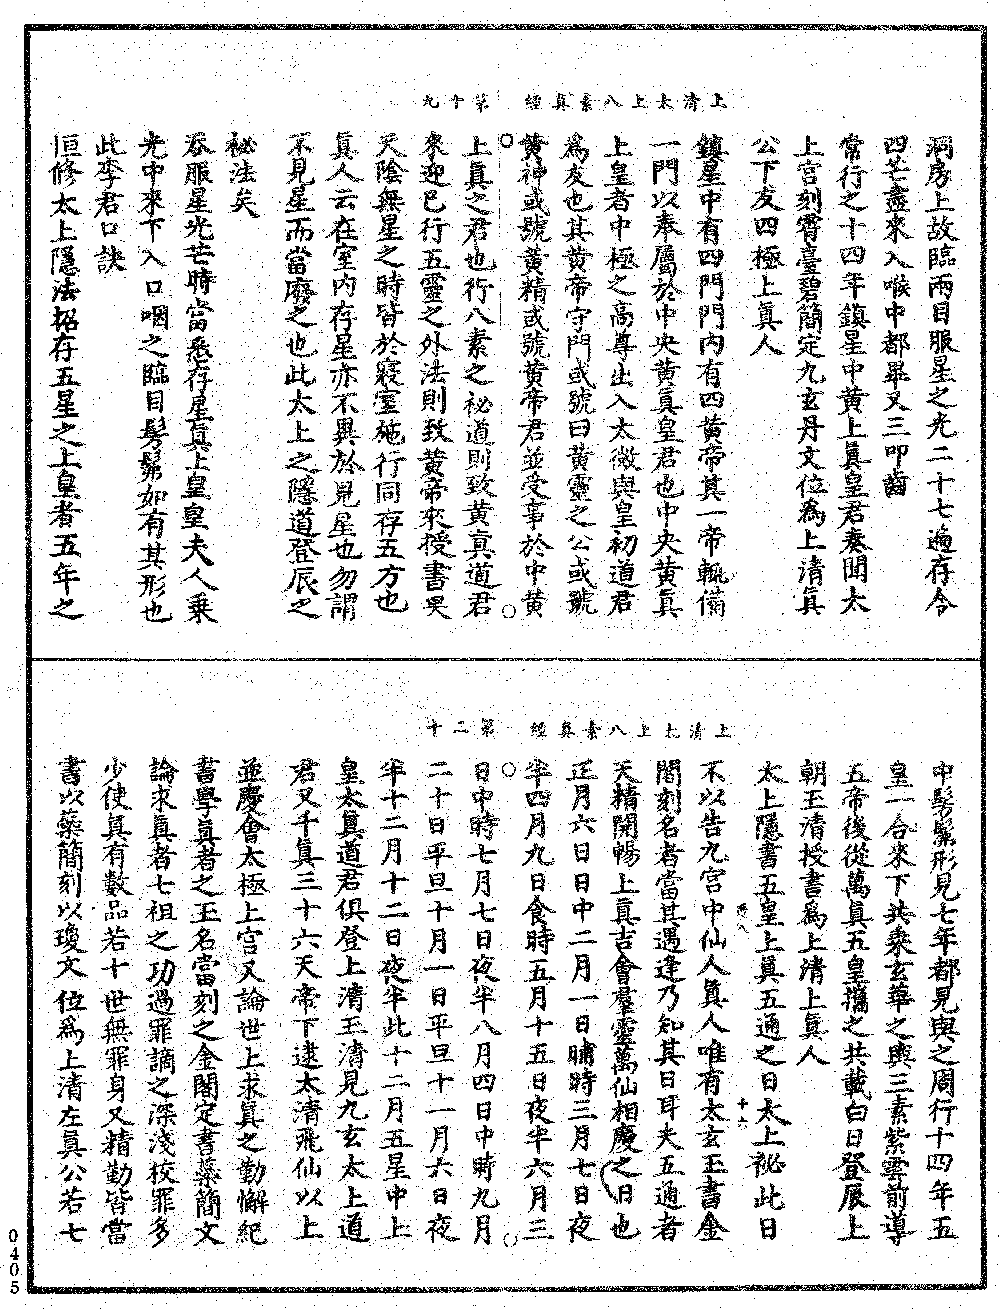 上清太上八素真經　第十九
洞房上故臨兩目服星之光二十七過存令
四芒盡來入喉中都畢又三叩齒
常行之十四年鎮星中黃上真皇君奏聞太
上宮刻霄臺碧簡定九玄丹文位為上清真
公下友四極上真人
鎮星中有四門門內有四黃帝其一帝輒備
一門以奉屬於中央黃真皇君也中央黃真
上皇者中極之高尊出入太微與皇初道君
為友也其黃帝守門或號曰黃靈之公或號
黃神或號黃精或號黃帝君並受事於中黃
上真之君也行八素之祕道則致黃真道君
來迎已行五靈之外法則致黃帝來授書畢
天陰無星之時皆於寢室施行同存五方也
真人云在室內存星亦不異於見星也勿謂
不見星而當廢之也此太上之隱道登辰之
祕法矣
吞服星光芒時當悉存星真上皇皇夫人乗
光中來下入口咽之臨目髣髴如有其形也
此李君口訣
恒修太上隱法招存五星之上皇者五年之
上清太上八素真經　第二十
中髣髴形見七年都見與之周行十四年五
皇一合來下共乗玄華之輿三素紫雲前導
五帝後從萬真五皇攜之共載白日登辰上
朝玉清授書為上清上真人
太上隱書五皇上真五通之日太上祕此日
不以告九宮中仙人真人唯有太玄玉書金
閣刻名者當其遇逢乃知其日耳夫五通者
天精開暢上真吉會羣靈萬仙相慶之日也
正月六日日中二月一日晡時三月七日夜
半四月九日食時五月十五日夜半六月三
日中時七月七日夜半八月四日中時九月
二十日平旦十月一日平旦十一月六日夜
半十二月十二日夜半此十二月五星中上
皇太真道君俱登上清玉清見九玄太上道
君又千真三十六天帝下逮太清飛仙以上
並慶會太極上宮又論世上求真之勤懈紀
書學真者之玉名當刻之金閣定書蘂簡文
論求真者七祖之功過罪謫之深淺校罪多
少使真有數品若十世無罪身又精勤皆當
書以蘂簡刻以瓊文位為上清左真公若七
0405